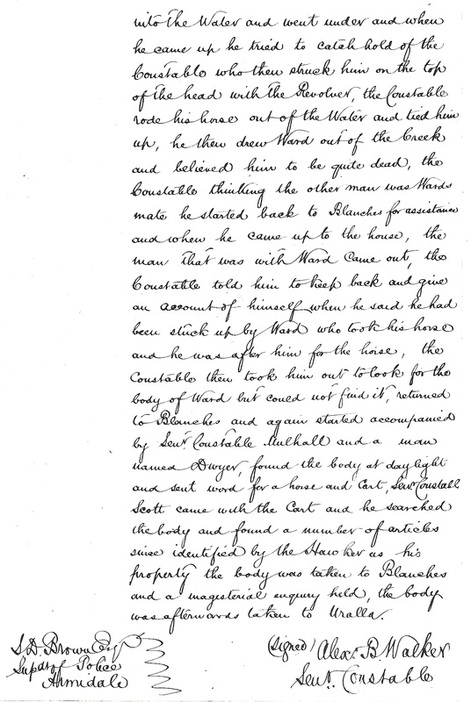 into the Water and went under and when
he came up he tried to catch hold of the
Constable who then struck him on the top
of the head with the Revolver, the Constable
rode his horse out of the Water and tied him
up, he then drew Ward out of the Creek
and believed him to be quite dead, the
Constable thinking the other man was Wards
mate he started back to Blanches for assistance
and when he came up to the house, the
man that was with Ward came out, the
Constable told him to keep back and give
an account of himself when he said he had
been stuck up by Ward who took his horse
and he was after him for the horse, the
Constable then took him out to look for the
body of Ward but could not find it, returned
to Blanches and again started accompanied
by Senr Constable Mulhall and a man
named Dwyer, found the body at daylight
and sent word for a horse and Cart, Senr Constable
Scott came with the Cart and he searched
the body and found a number of articles
since identified by the Hawker as his
property the body was taken to Blanches
and a magisterial enquiry held, the body
was afterwards taken to Uralla.
(signed) Alexr B Walker
Senr Constable
S. D. Brown Esqr
Supdr of Police
Armidale